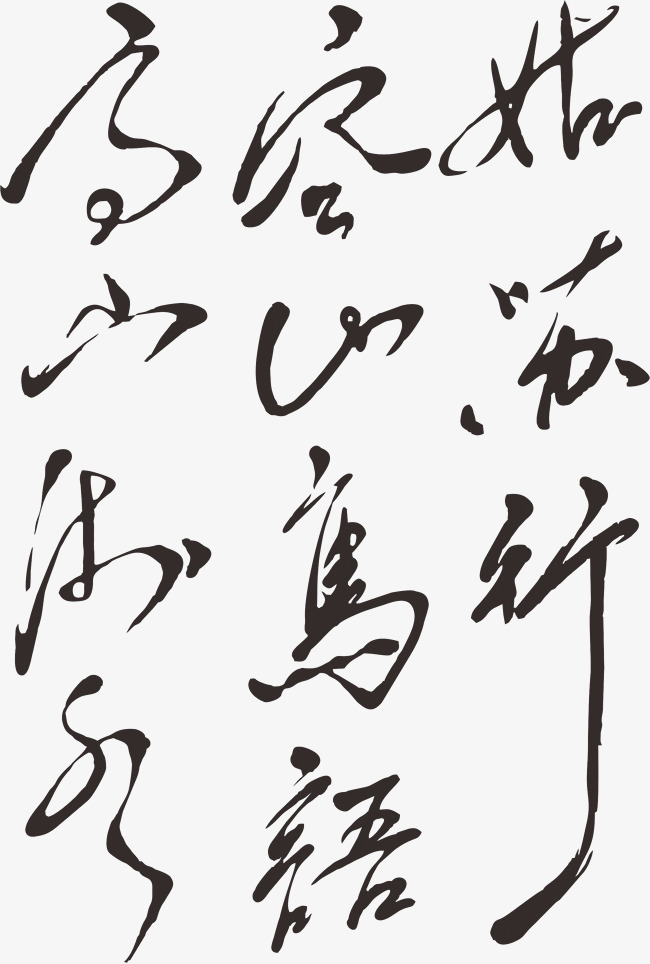 姑苏行
空山鳥語
高山流水